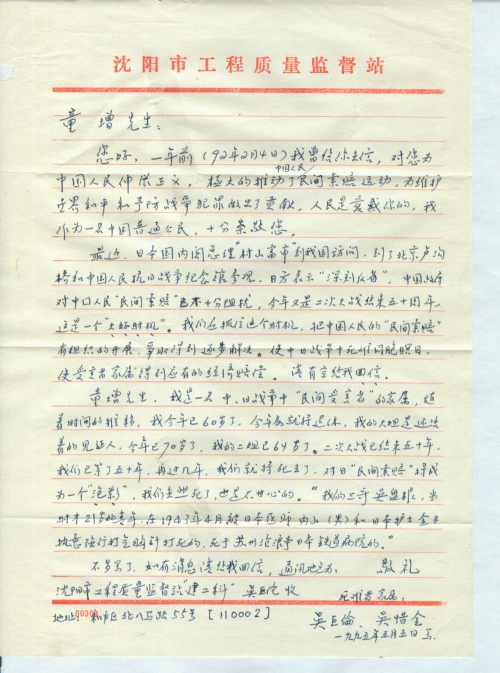 沈阳市工程质量监督站
童增先生：
您好，一年前（92年2月4日）我曾给你去信，对您为
中国人民伸张正义，极大的推动了中国人民民间索赔运动，为维护
世界和平和予防战争犯罪做出了贡献，人民是爱戴你的，我
作为一名中国普通公民，十分崇敬您。
最近，日本国内阁总理"村山富市"到我国访问，到了北京卢沟
桥和中国人民抗日战争纪念馆参观，日方表示"深刻反省"，中国政府
对中国人民"民间索赔"十分阻扰，今年又是二次大战结束五十周年，
这是一个"大好时机"。我们应抓住这个时机，把中国人民的"民间索赔"
有组织的开展，争取得到逐步解决。使中日战争中死难同胞瞑目，
使受害者家属得到应有的经济赔偿。请有空给我回信。
童增先生，我是一名中、日战争中"民间受害者"的家属，随
着时间的推移，我今年已60岁了，今年底就将退休，我的大姐是还活
着的见证人，今年已70岁了，我的二姐已64岁了。二次大战已结束五十年，
我们已等了五十年，再过几年，我们就将死去了，对日"民间索赔"将成
为一个"泡影"，我们怎死了，也是不甘心的。"我的三哥吴盘根，当
时才21岁的青年，在1943年4月被日本医师内山（男）和日本护士金玉
故意强行打空胸针打死的，死于苏州沧浪亭日本铁道病院的。"
不多写了，如有消息请给我回信，通讯地址为： 敬礼
沈阳市工程质量监督站"建工科" 吴巨伦收
死难者家属：
地址：和平区北八马路55号［110002］
吴巨倫、吴惜金
一九九五年五月五日写